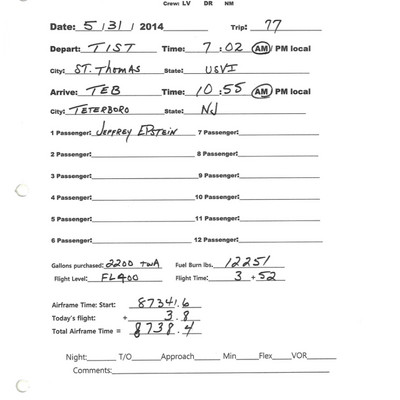 Crew: LV DR NM
Date: 5 / 31 / 2014 Trip: 77
Depart: TIST Time: 7 : 02 AM / PM local
City: ST. THOMAS State: USVI
Arrive: TEB Time: 10 : 55 AM / PM local
City: TETERBORO State: NJ
1 Passenger: JEFFREY EPSTEIN 7 Passenger:
2 Passenger: 8 Passenger:
3 Passenger: 9 Passenger:
4 Passenger: 10 Passenger:
5 Passenger: 11 Passenger:
6 Passenger: 12 Passenger:
Gallons purchased: 2200 TWA Fuel Burn lbs. 12251
Flight Level: FL400 Flight Time: 3 + 52
Airframe Time: Start: 8734.6
Today's flight: + 3.8
Total Airframe Time = 8738.4
Night: T/O Approach Min Flex VOR
Comments: